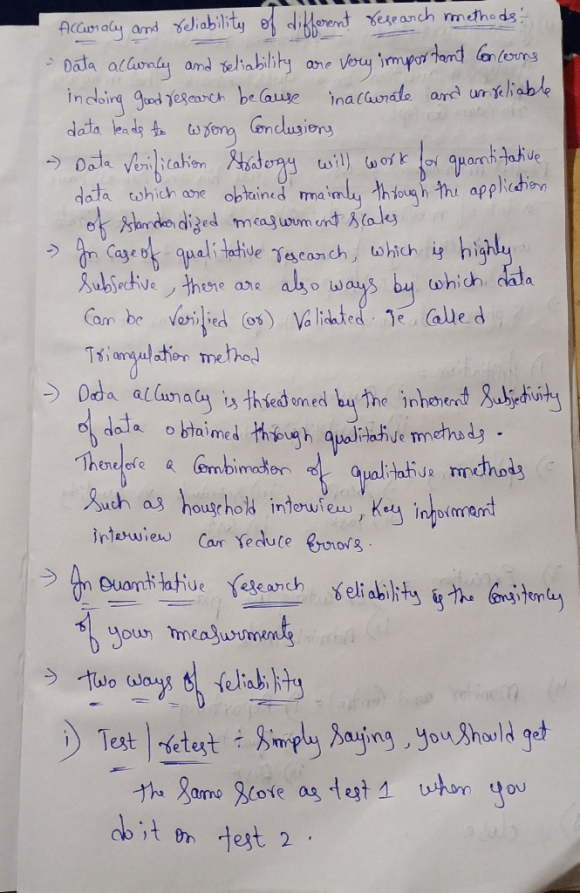 Accuracy and reliability of different research methods:-
- Data accuracy and reliability are very important Concerns
in doing good research because inaccurate and unreliable
data leads to wrong Conclusions
→ Data Verification Stratergy will work for quantitative
data which are obtained mainly through the application
of standardized measurment scales
→ In Case of qualitative research, which is highly
Subjective, there are also ways by which data
Can be Verified (or) Validated. Ie Called
Triangulation method
→ Data accuracy is threatened by the inherent Subjectivity
of data obtained through qualitative methods.
Therefore a Combination of qualitative methods
Such as household interview, Key informant
interview Can reduce Errors.
→ In Quantitative research reliability is the Consitency
of your measurments
→ Two ways of reliability
i) Test | retest :- Simply Saying, you Should get
the Same Score as test 1 when you
do it on test 2.